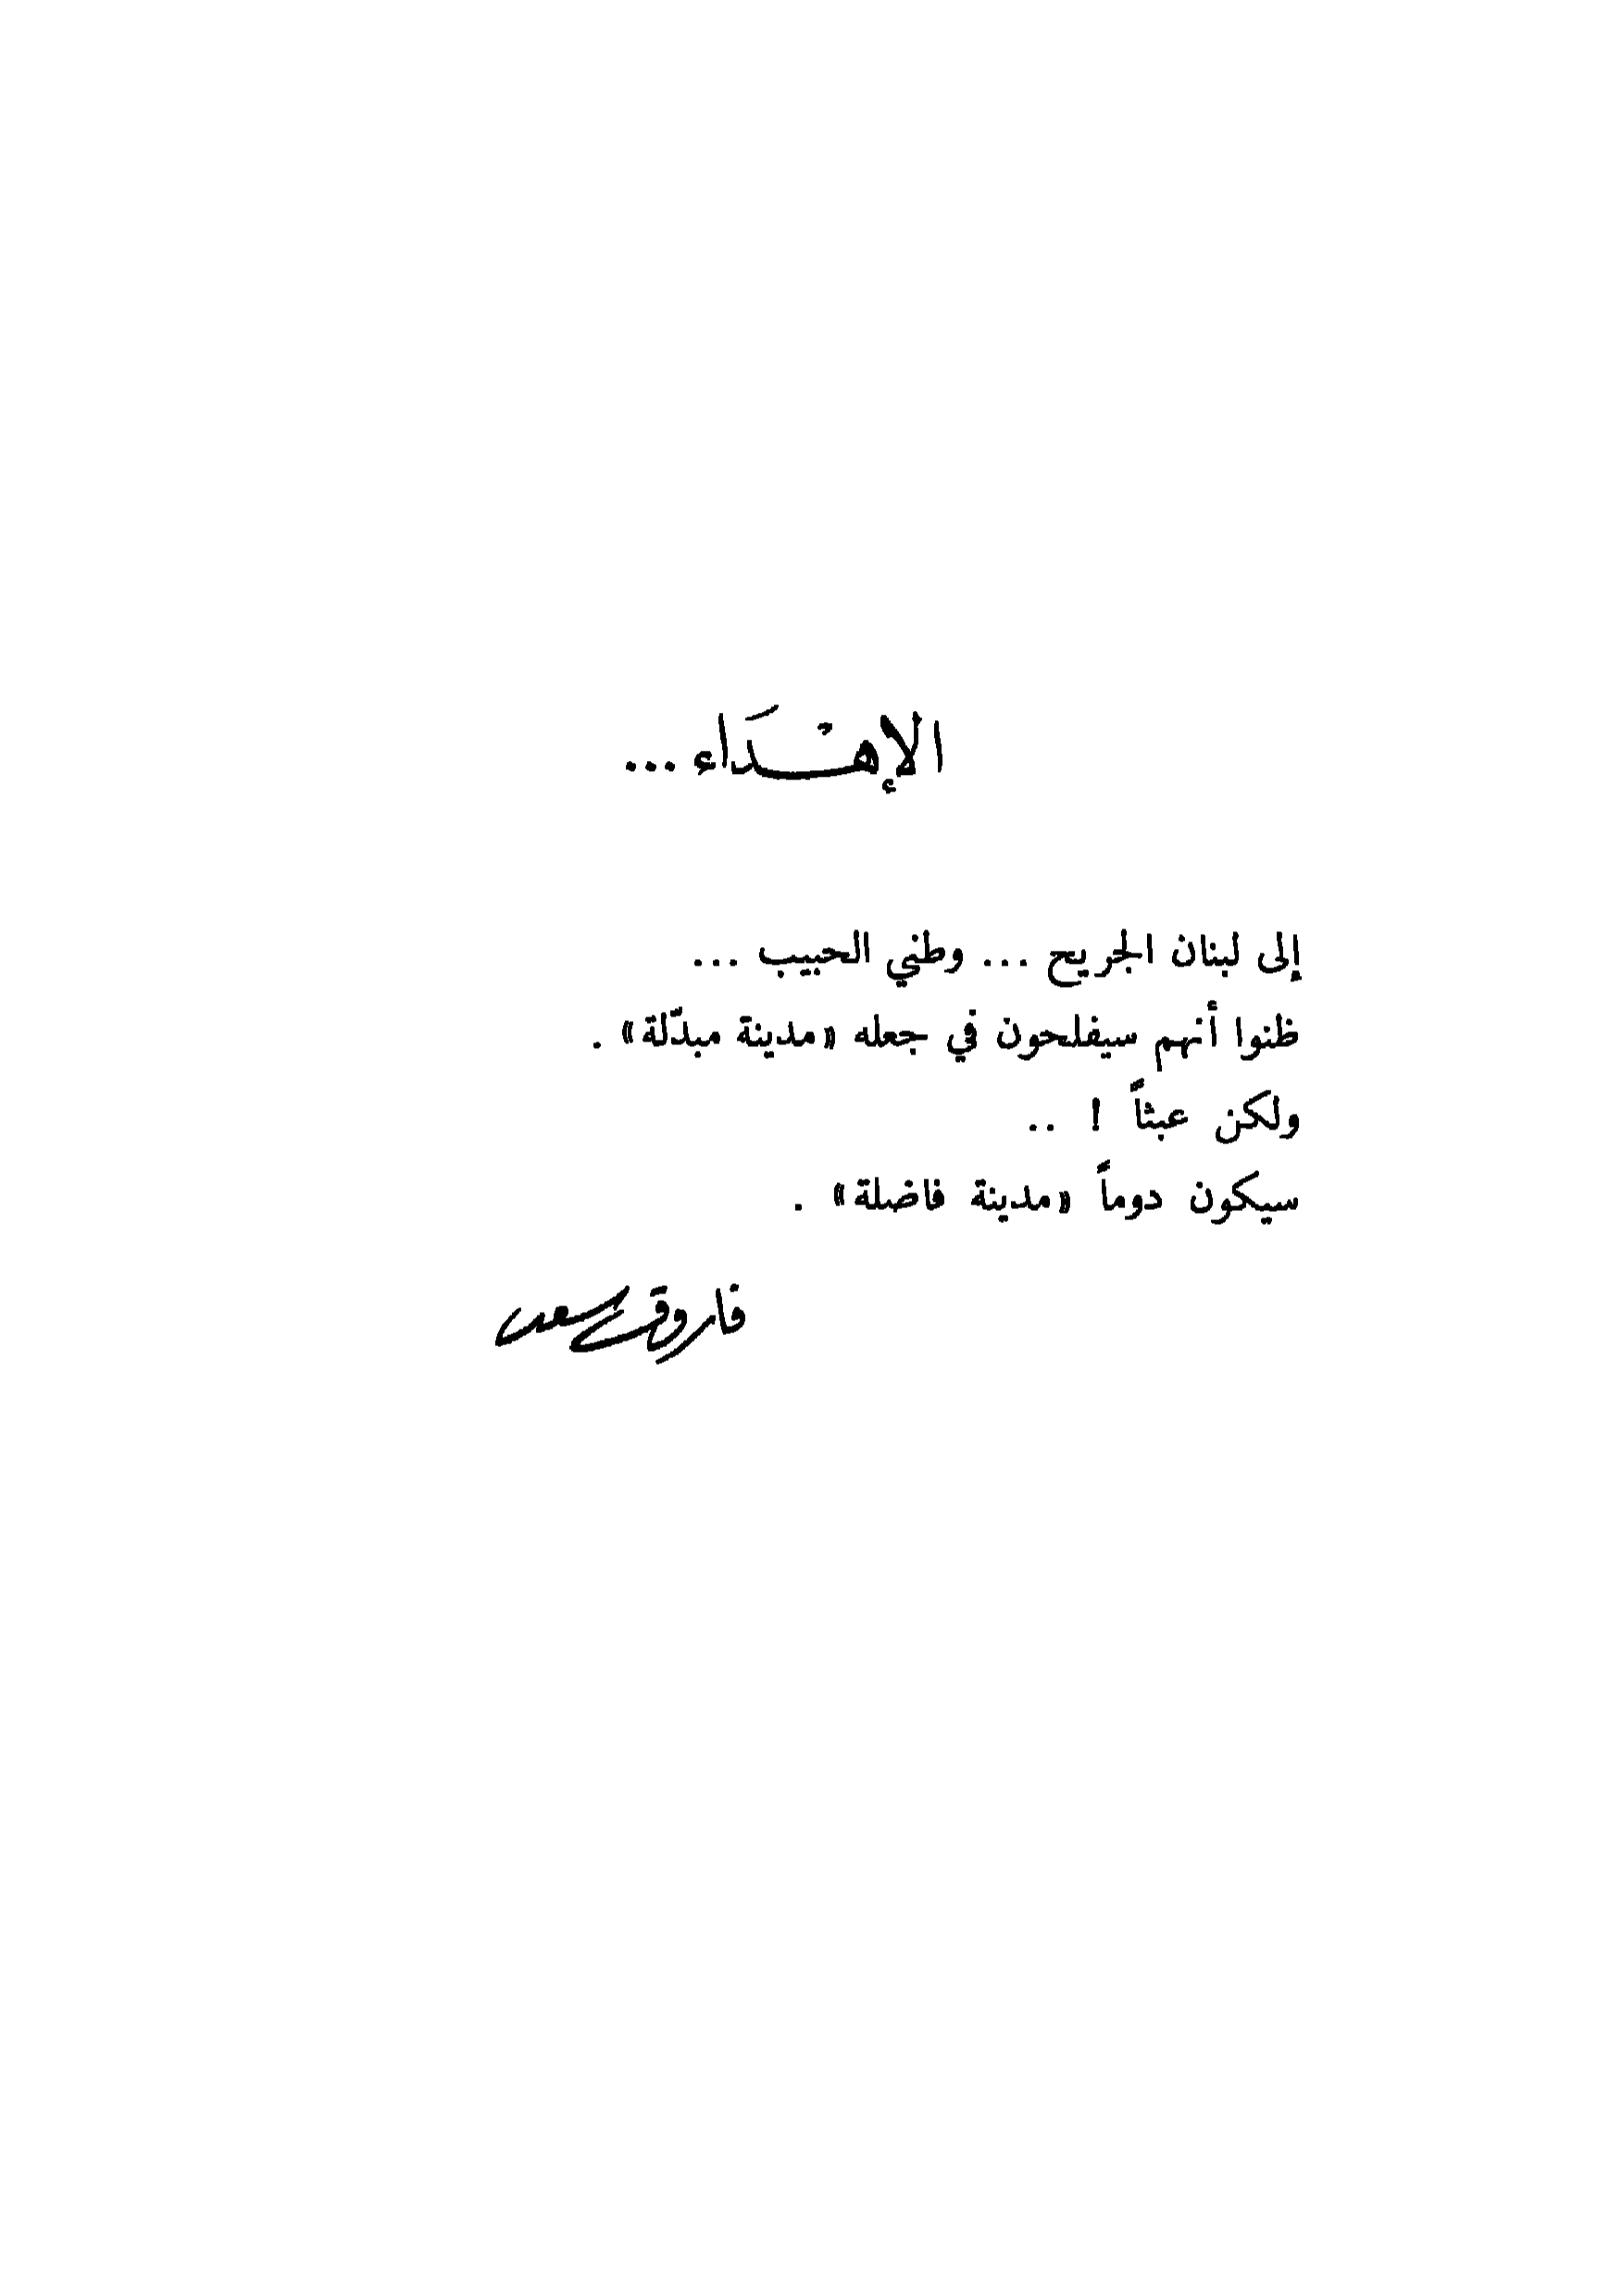 الإهْدَاء ...
إلى لبنان الجريح ... وطني الحبيب ...
ظنوا أنهم سيفلحون في جعله «مدينة مبدّلة» .
ولكن عبثاً ! ..
سيكون دوماً «مدينة فاضلة» .
فاروق سعد